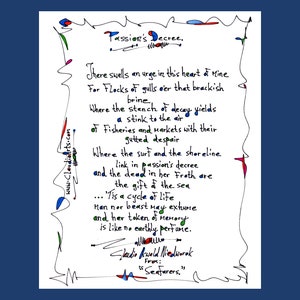 Passion's Decree.
There swells an urge in this heart of mine
For Flocks of gulls o'er that brackish
brine
Where the stench of decay yields
a stink to the air
of Fisheries and Markets with their
gutted despair
Where the surf and the shoreline
link in passion's decree
and the dead in her froth are
the gift of the sea
... 'Tis a cycle of life
Man nor beast may exhume
and her token of Memory
is like no earthly perfume.
From:
"Seafarers."